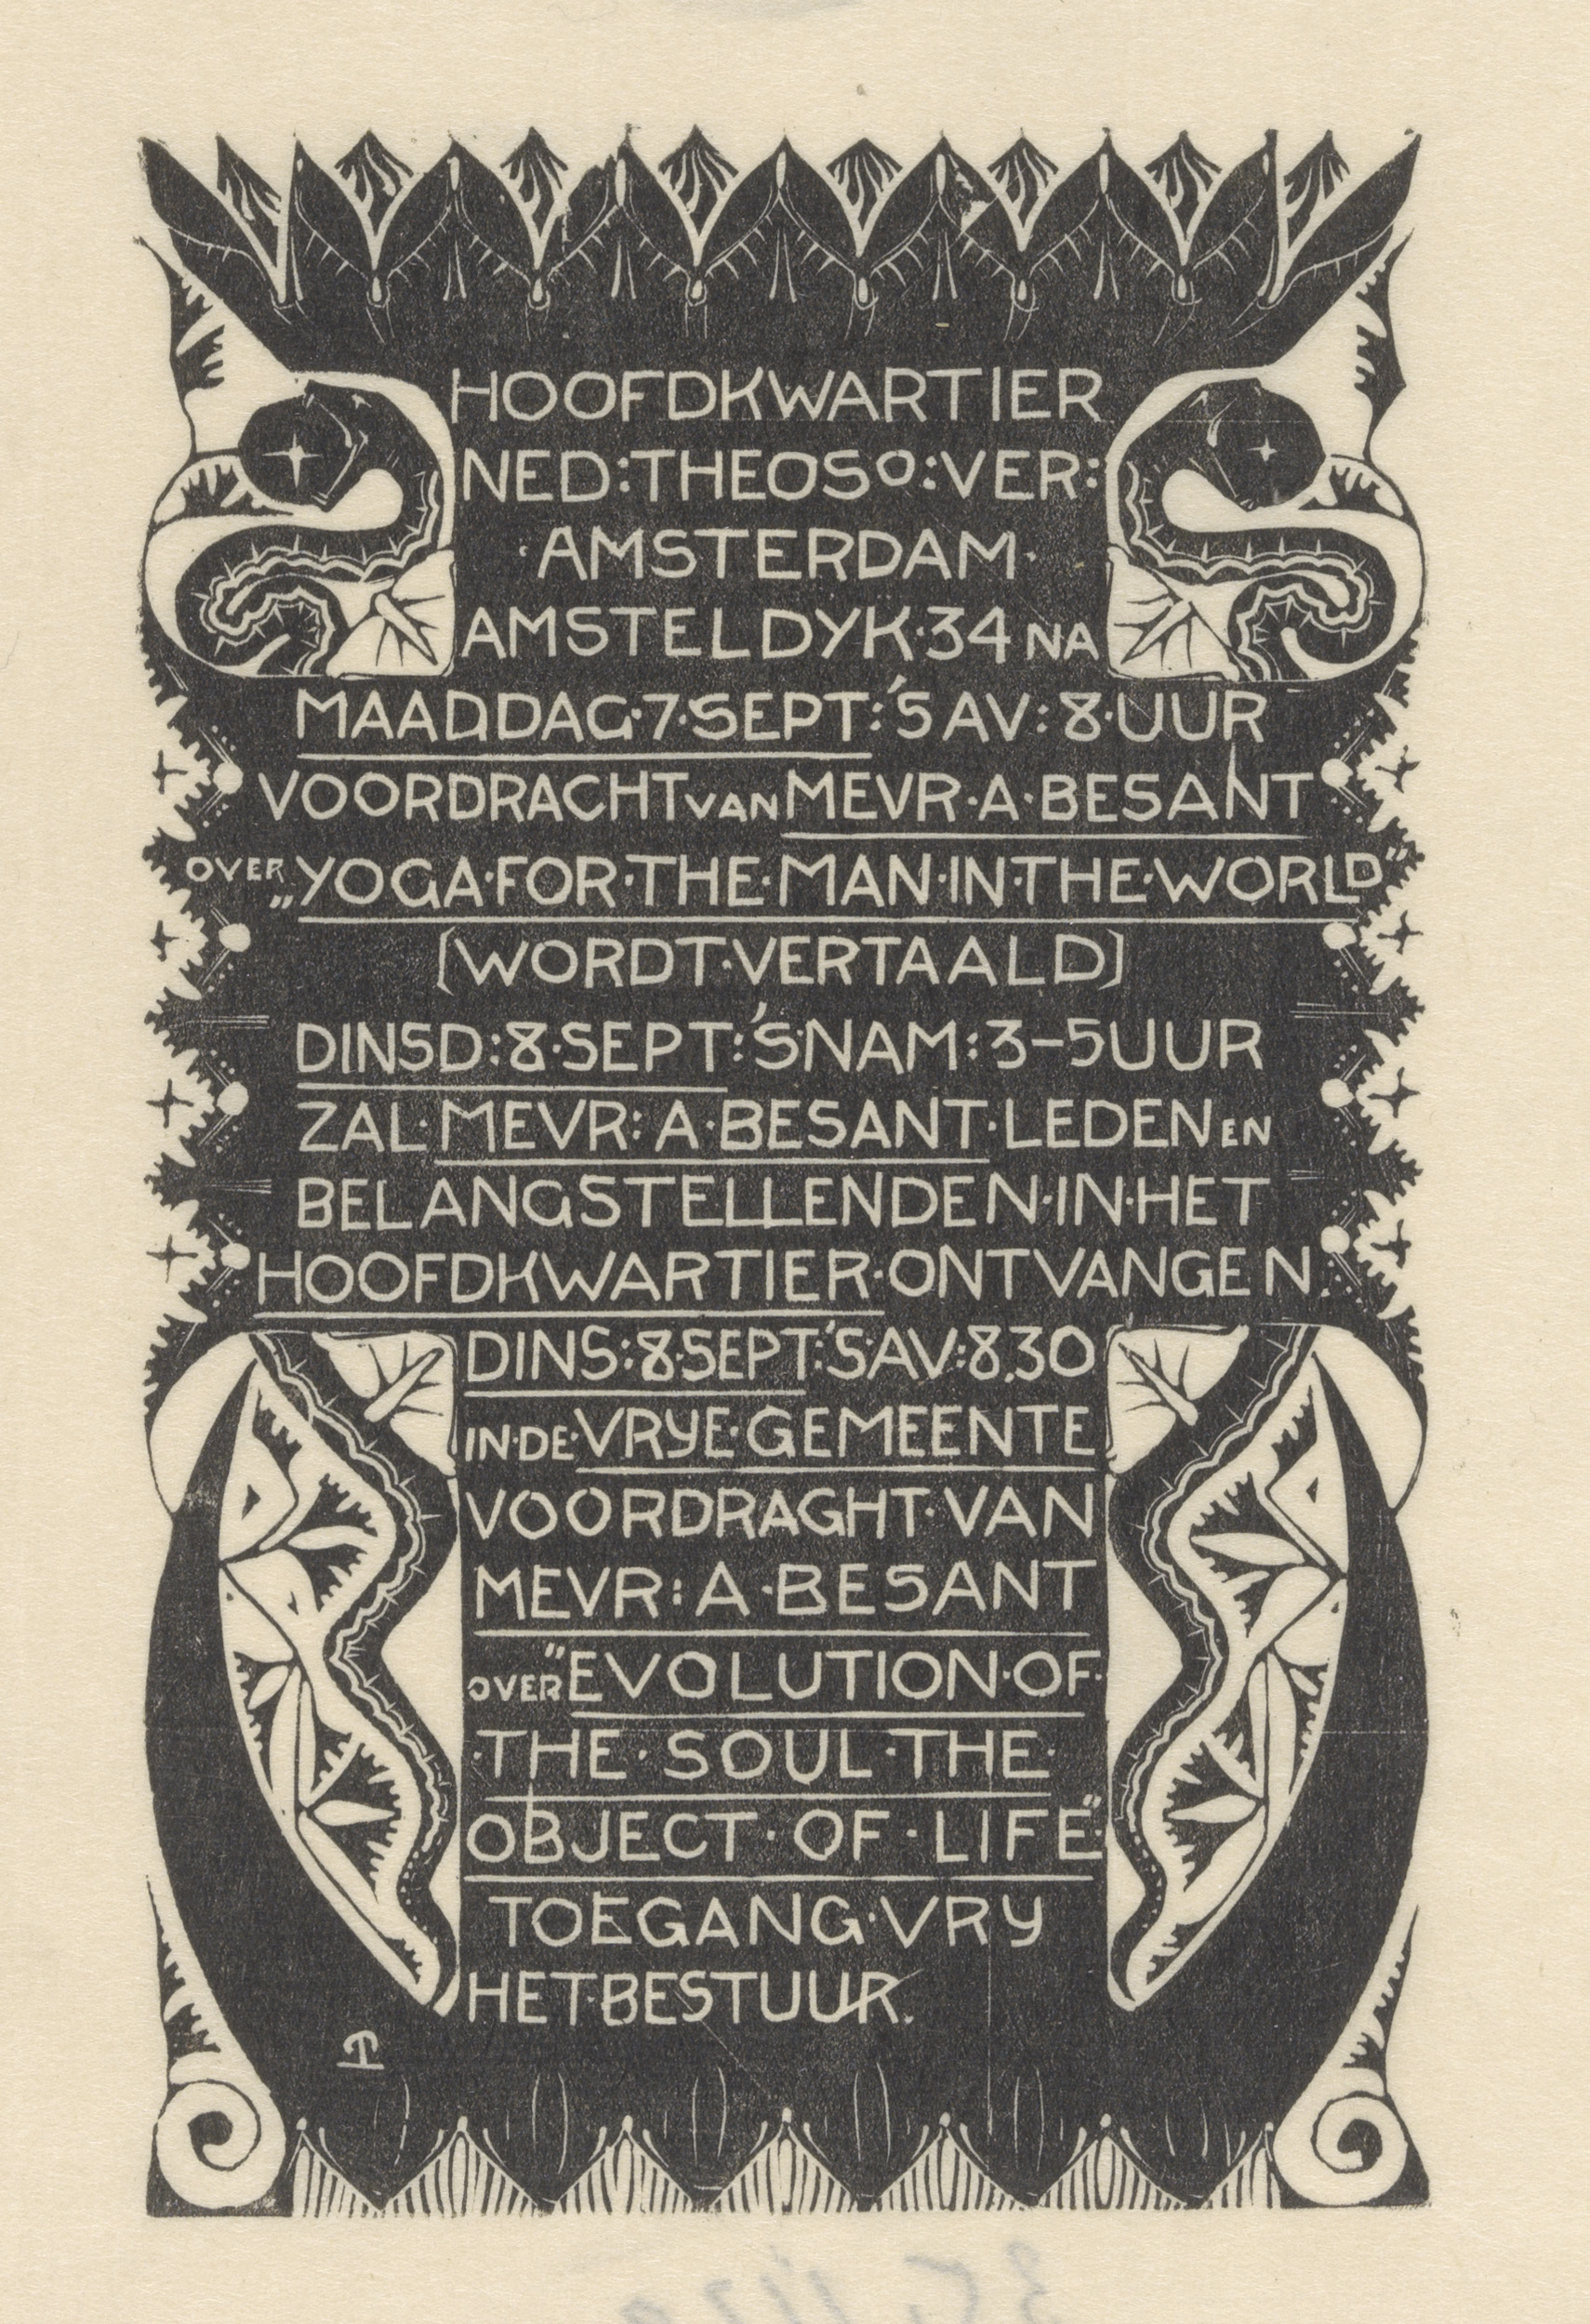 HOOFDKWARTIER
NED:THEOSO:VER:
·AMSTERDAM·
AMSTELDYK·34 NA
MAADDAG·7·SEPT:'S AV:8·UUR
VOORDRACHT VAN MEVR·A·BESANT
OVER „YOGA·FOR·THE·MAN·IN·THE·WORLD"
[WORDT·VERTAALD]
DINSD:8·SEPT:'S·NAM:3-5UUR
ZAL·MEVR:A·BESANT·LEDEN EN
BELANGSTELLENDEN·IN·HET
HOOFDKWARTIER·ONTVANGEN.
DINS:8·SEPT:'S·AV:8.30
IN·DE·VRYE·GEMEENTE
VOORDRAGHT·VAN
MEVR:A·BESANT
OVER "EVOLUTION·OF·
·THE·SOUL·THE·
OBJECT·OF·LIFE":
TOEGANG·VRY
HET·BESTUUR.